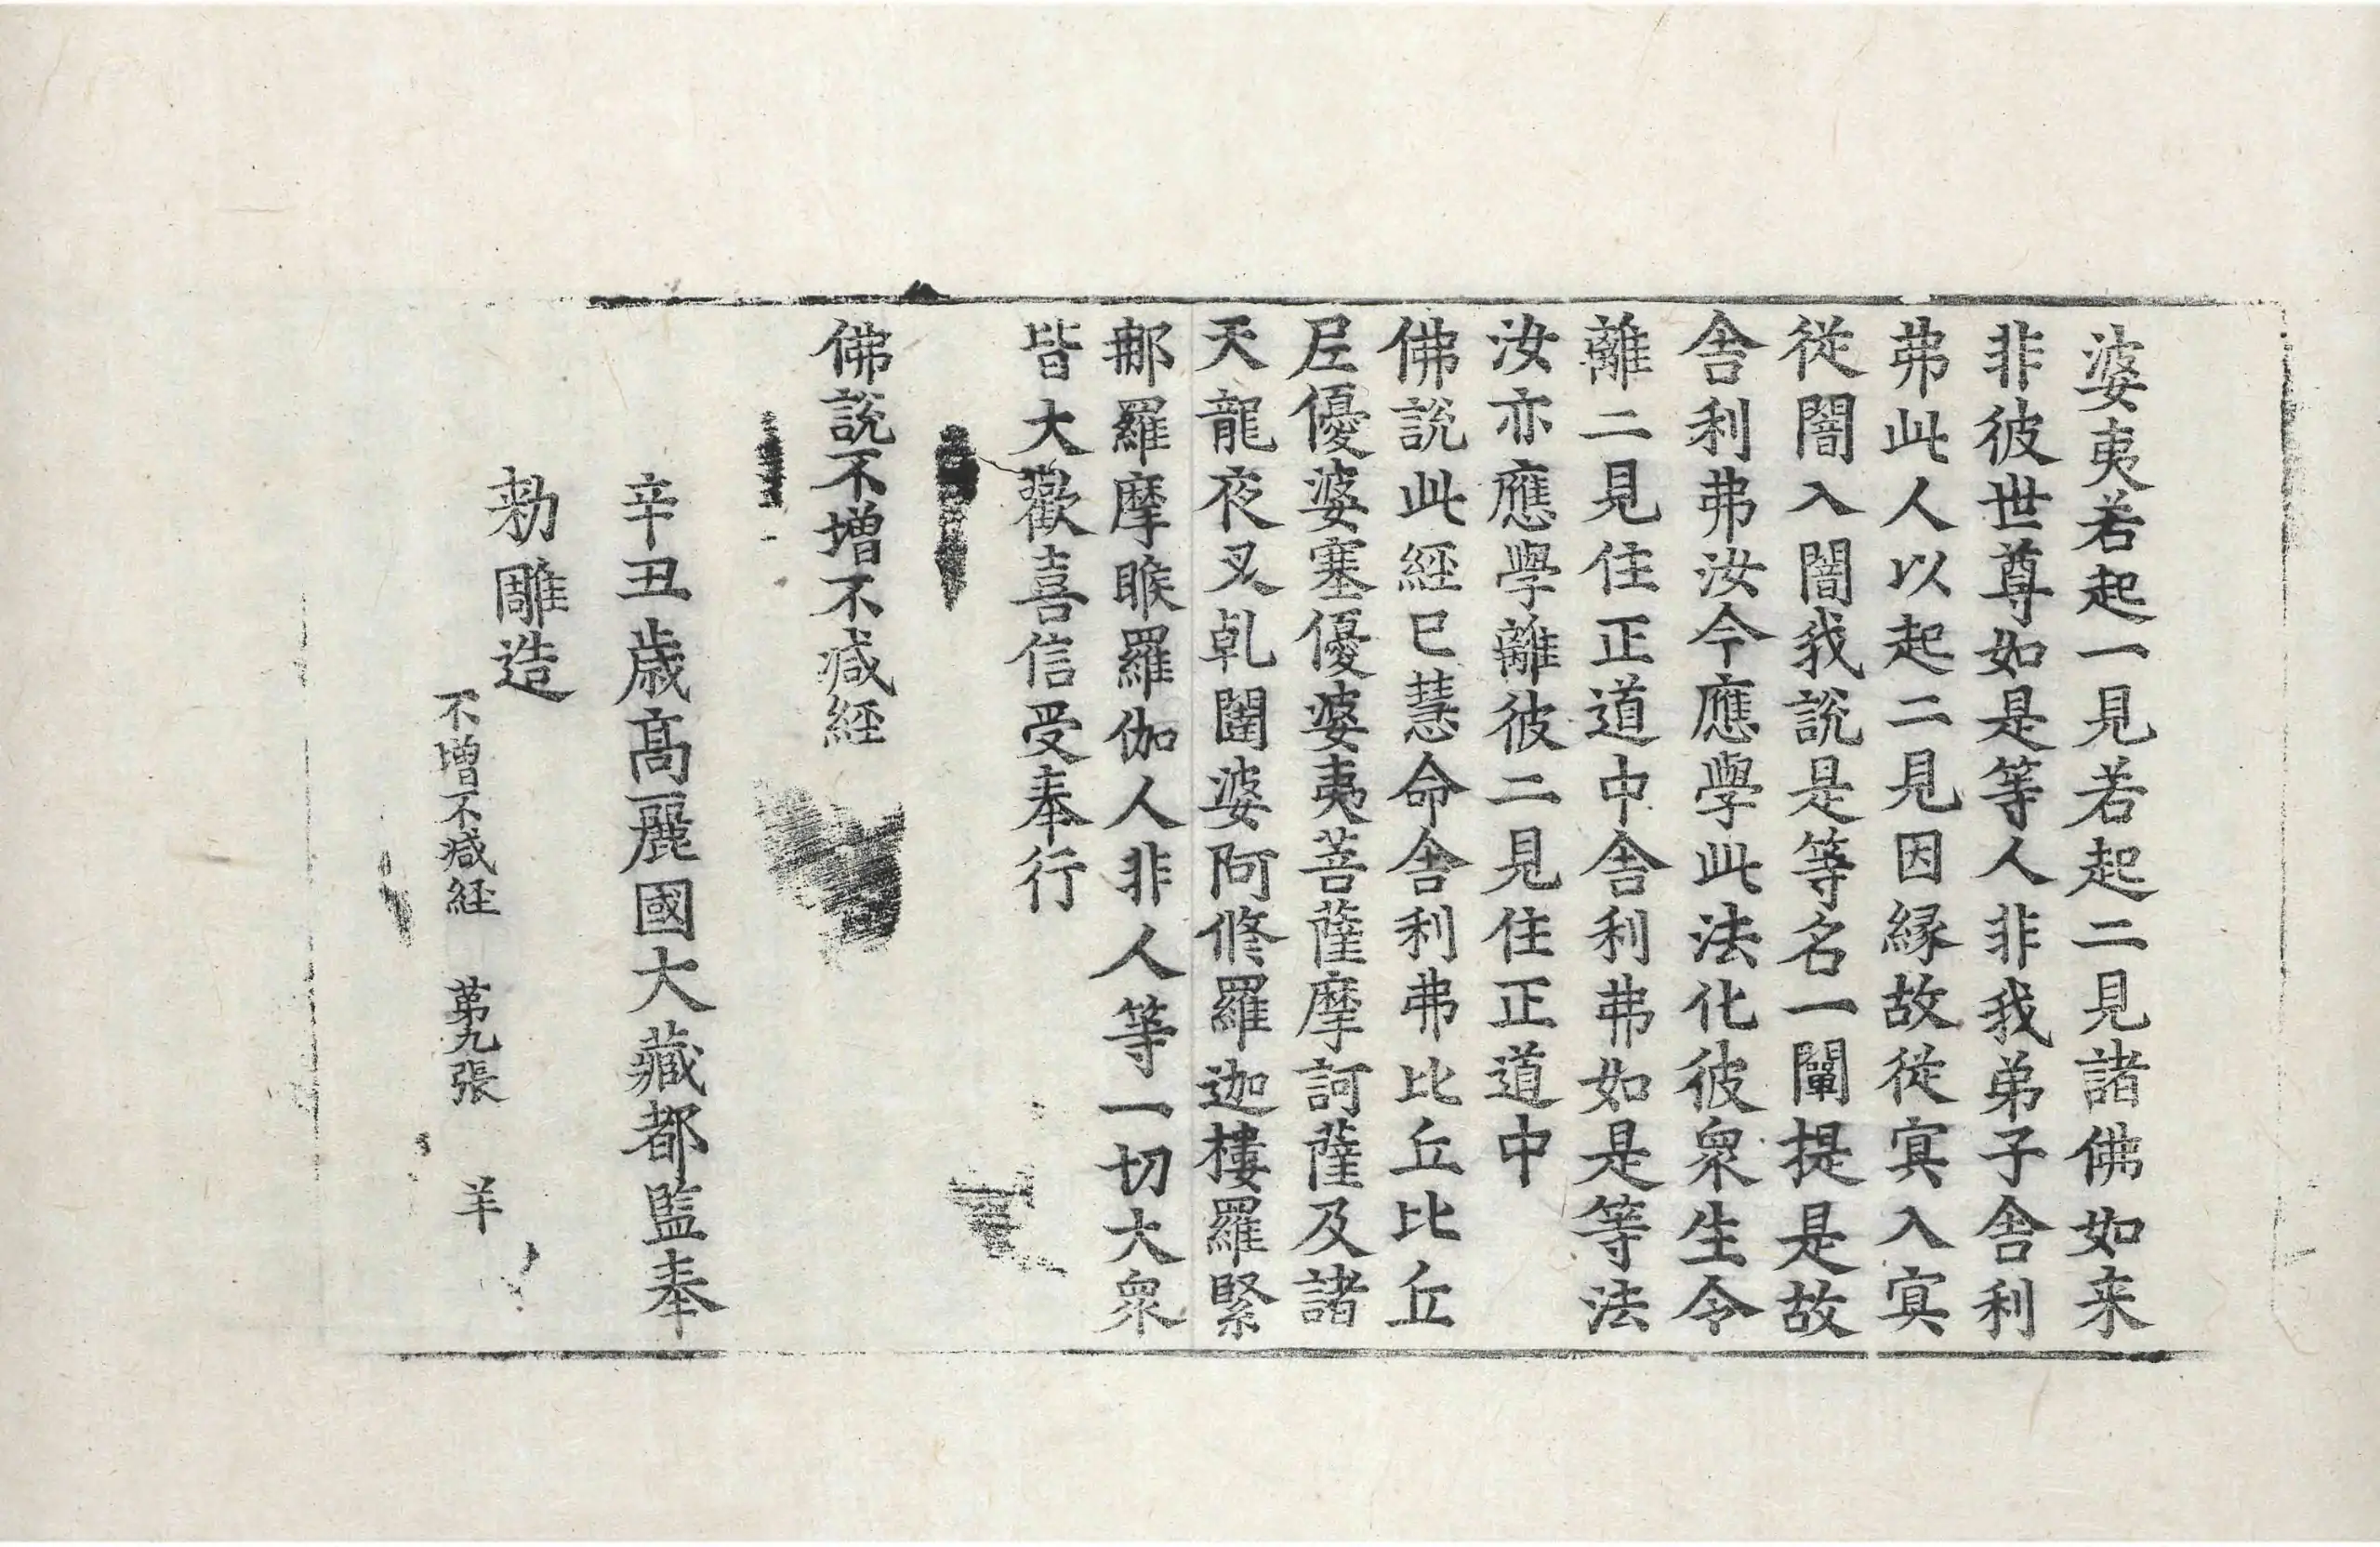 婆夷若起一見若起二見諸佛如来
非彼世尊如是等人非我弟子舎利
弗此人以起二見因縁故従㝠入㝠
従闇入闇我說是等名一闡提是故
舎利弗汝今應學此法化彼衆生令
離二見住正道中舎利弗如是等法
汝亦應學離彼二見住正道中
佛說此經已慧命舎利弗比丘比丘
尼優婆塞優婆夷菩薩摩訶薩及諸
天龍夜叉乹闥婆阿修羅迦樓羅緊
那羅摩睺羅伽人非人等一切大衆
皆大歡喜信受奉行
佛說不增不减経
辛丑歳髙麗國大藏都監奉
勑雕造
不增不减経 第九張 羊